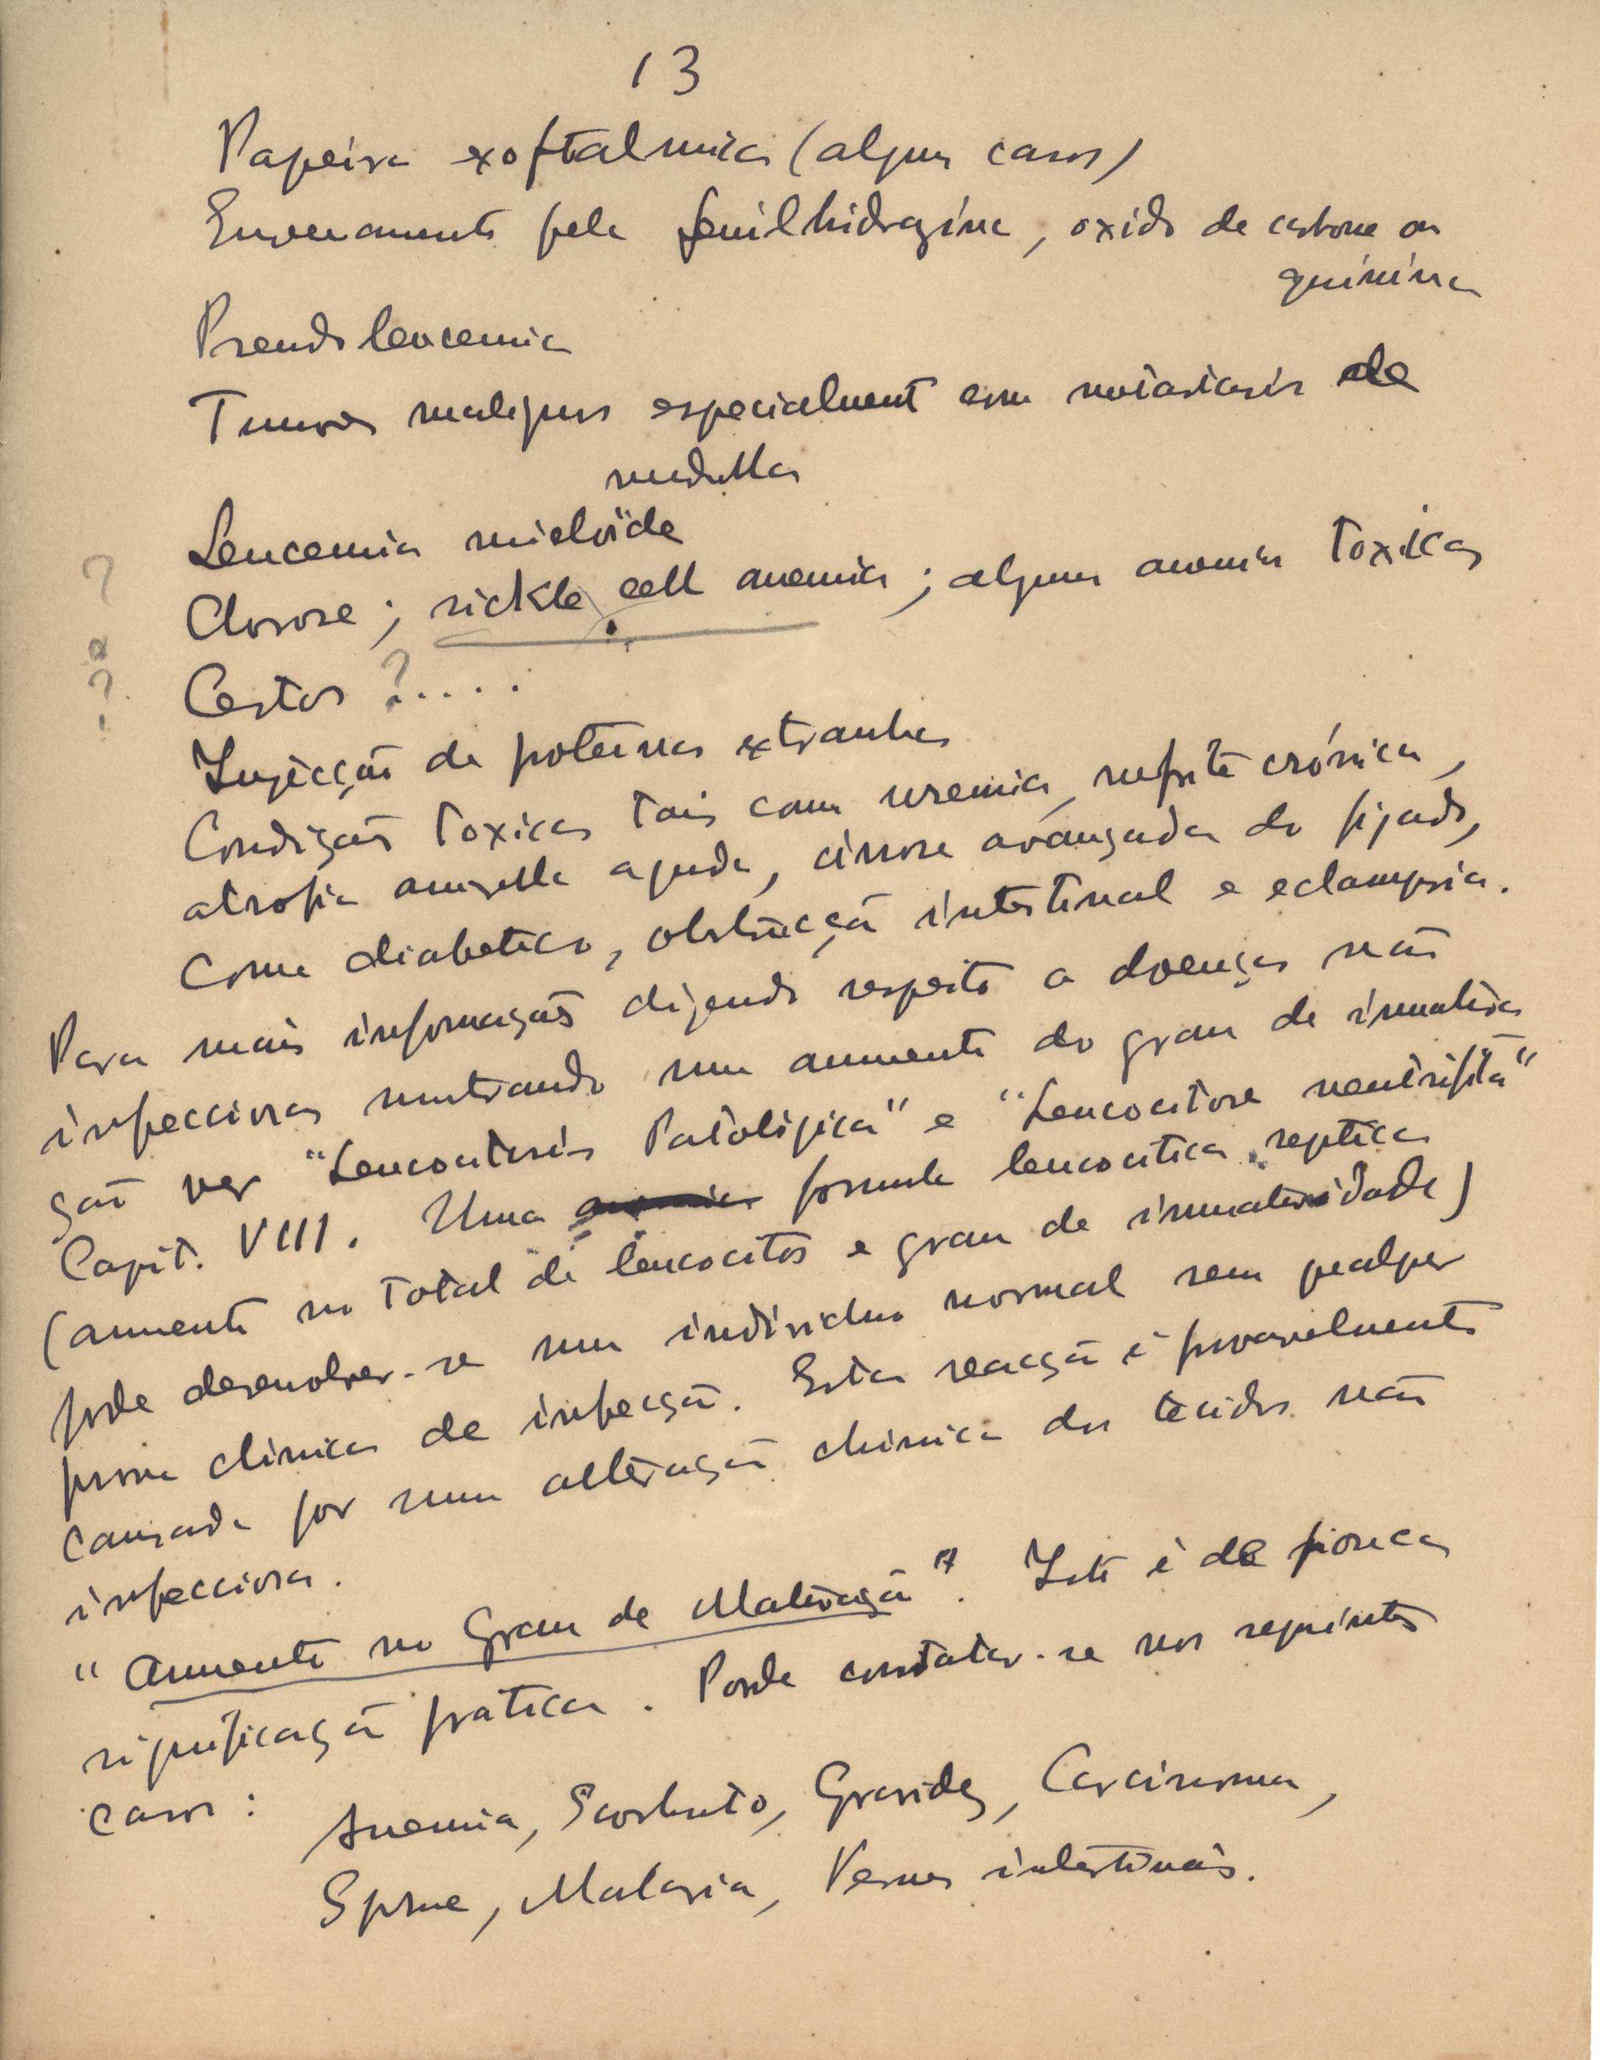 13
Papeira exoftalmica (alguns casos)
Envenenamento pela fenilhidrazina, oxido de carbone ou
quinina
Pseudoleucemia
Tumores malignos especialmente com metastasis de
medulla
Leucemia mielóide
Clorose; sickle cell anemia; algumas anemias toxicas
Certos ?....
Injecção de proteinas extranhas
Condições toxicas tais como uremia, nefrite crónica,
atrofia amarella aguda, cirrose avançada do figado,
coma diabetico, obstrucção intestinal e eclampsia.
Para mais informações dizendo respeito a doenças não
infecciosas mostrando um aumento do grau de inmatura
ção ver "Leucocitosis Patologica" e "Leucocitose neutrofila"
Capit. VIII. Uma formula leucocitica septica
(aumento no total de leucocitos e grau de inmaturidade)
pode desenvolver-se num individuo normal sem qualquer
prova clinica de infecção. Esta reacção é provavelmente
causada por uma alteração chimica dos tecidos não
infecciosa.
"Aumento no Grau de Maturação". Isto é de pouca
significação pratica. Pode constatar-se nos seguintes
casos:
Anemia, Scorbuto, Gravidez, Carcinoma,
Sprue, Malaria, Vermes intestinais.